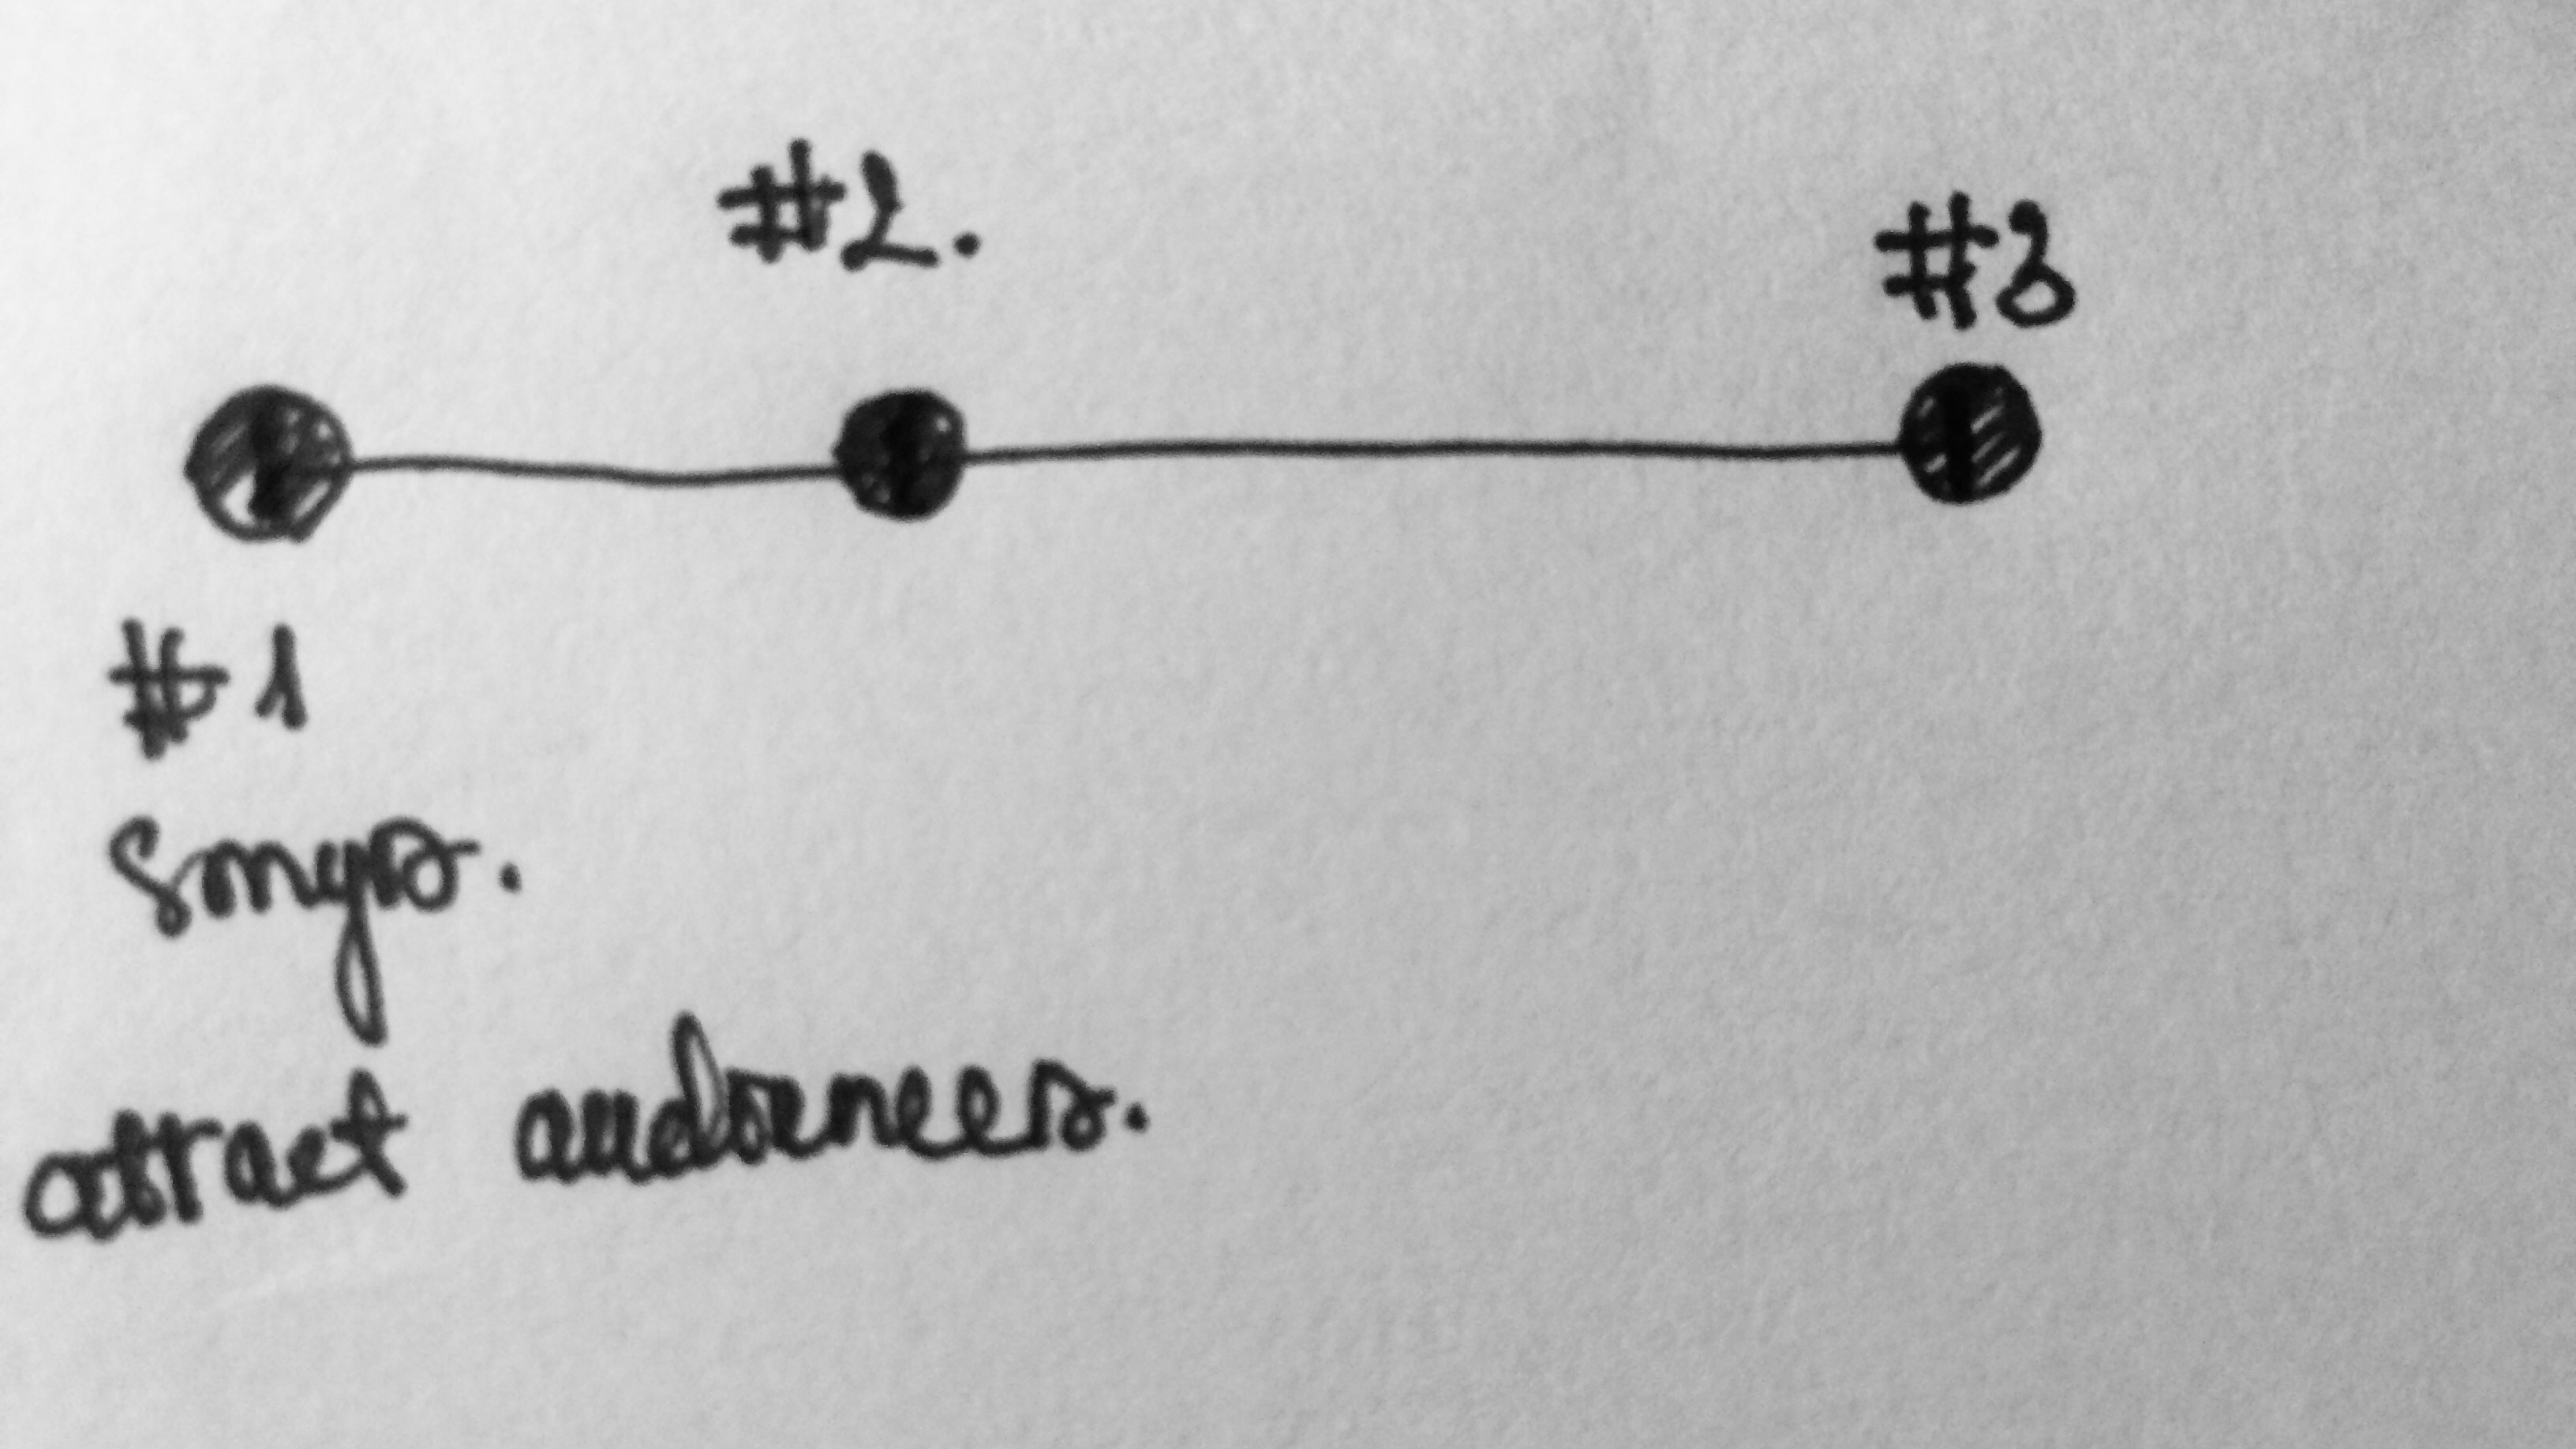 #2.
#3
#1
songs.
attract audiences.